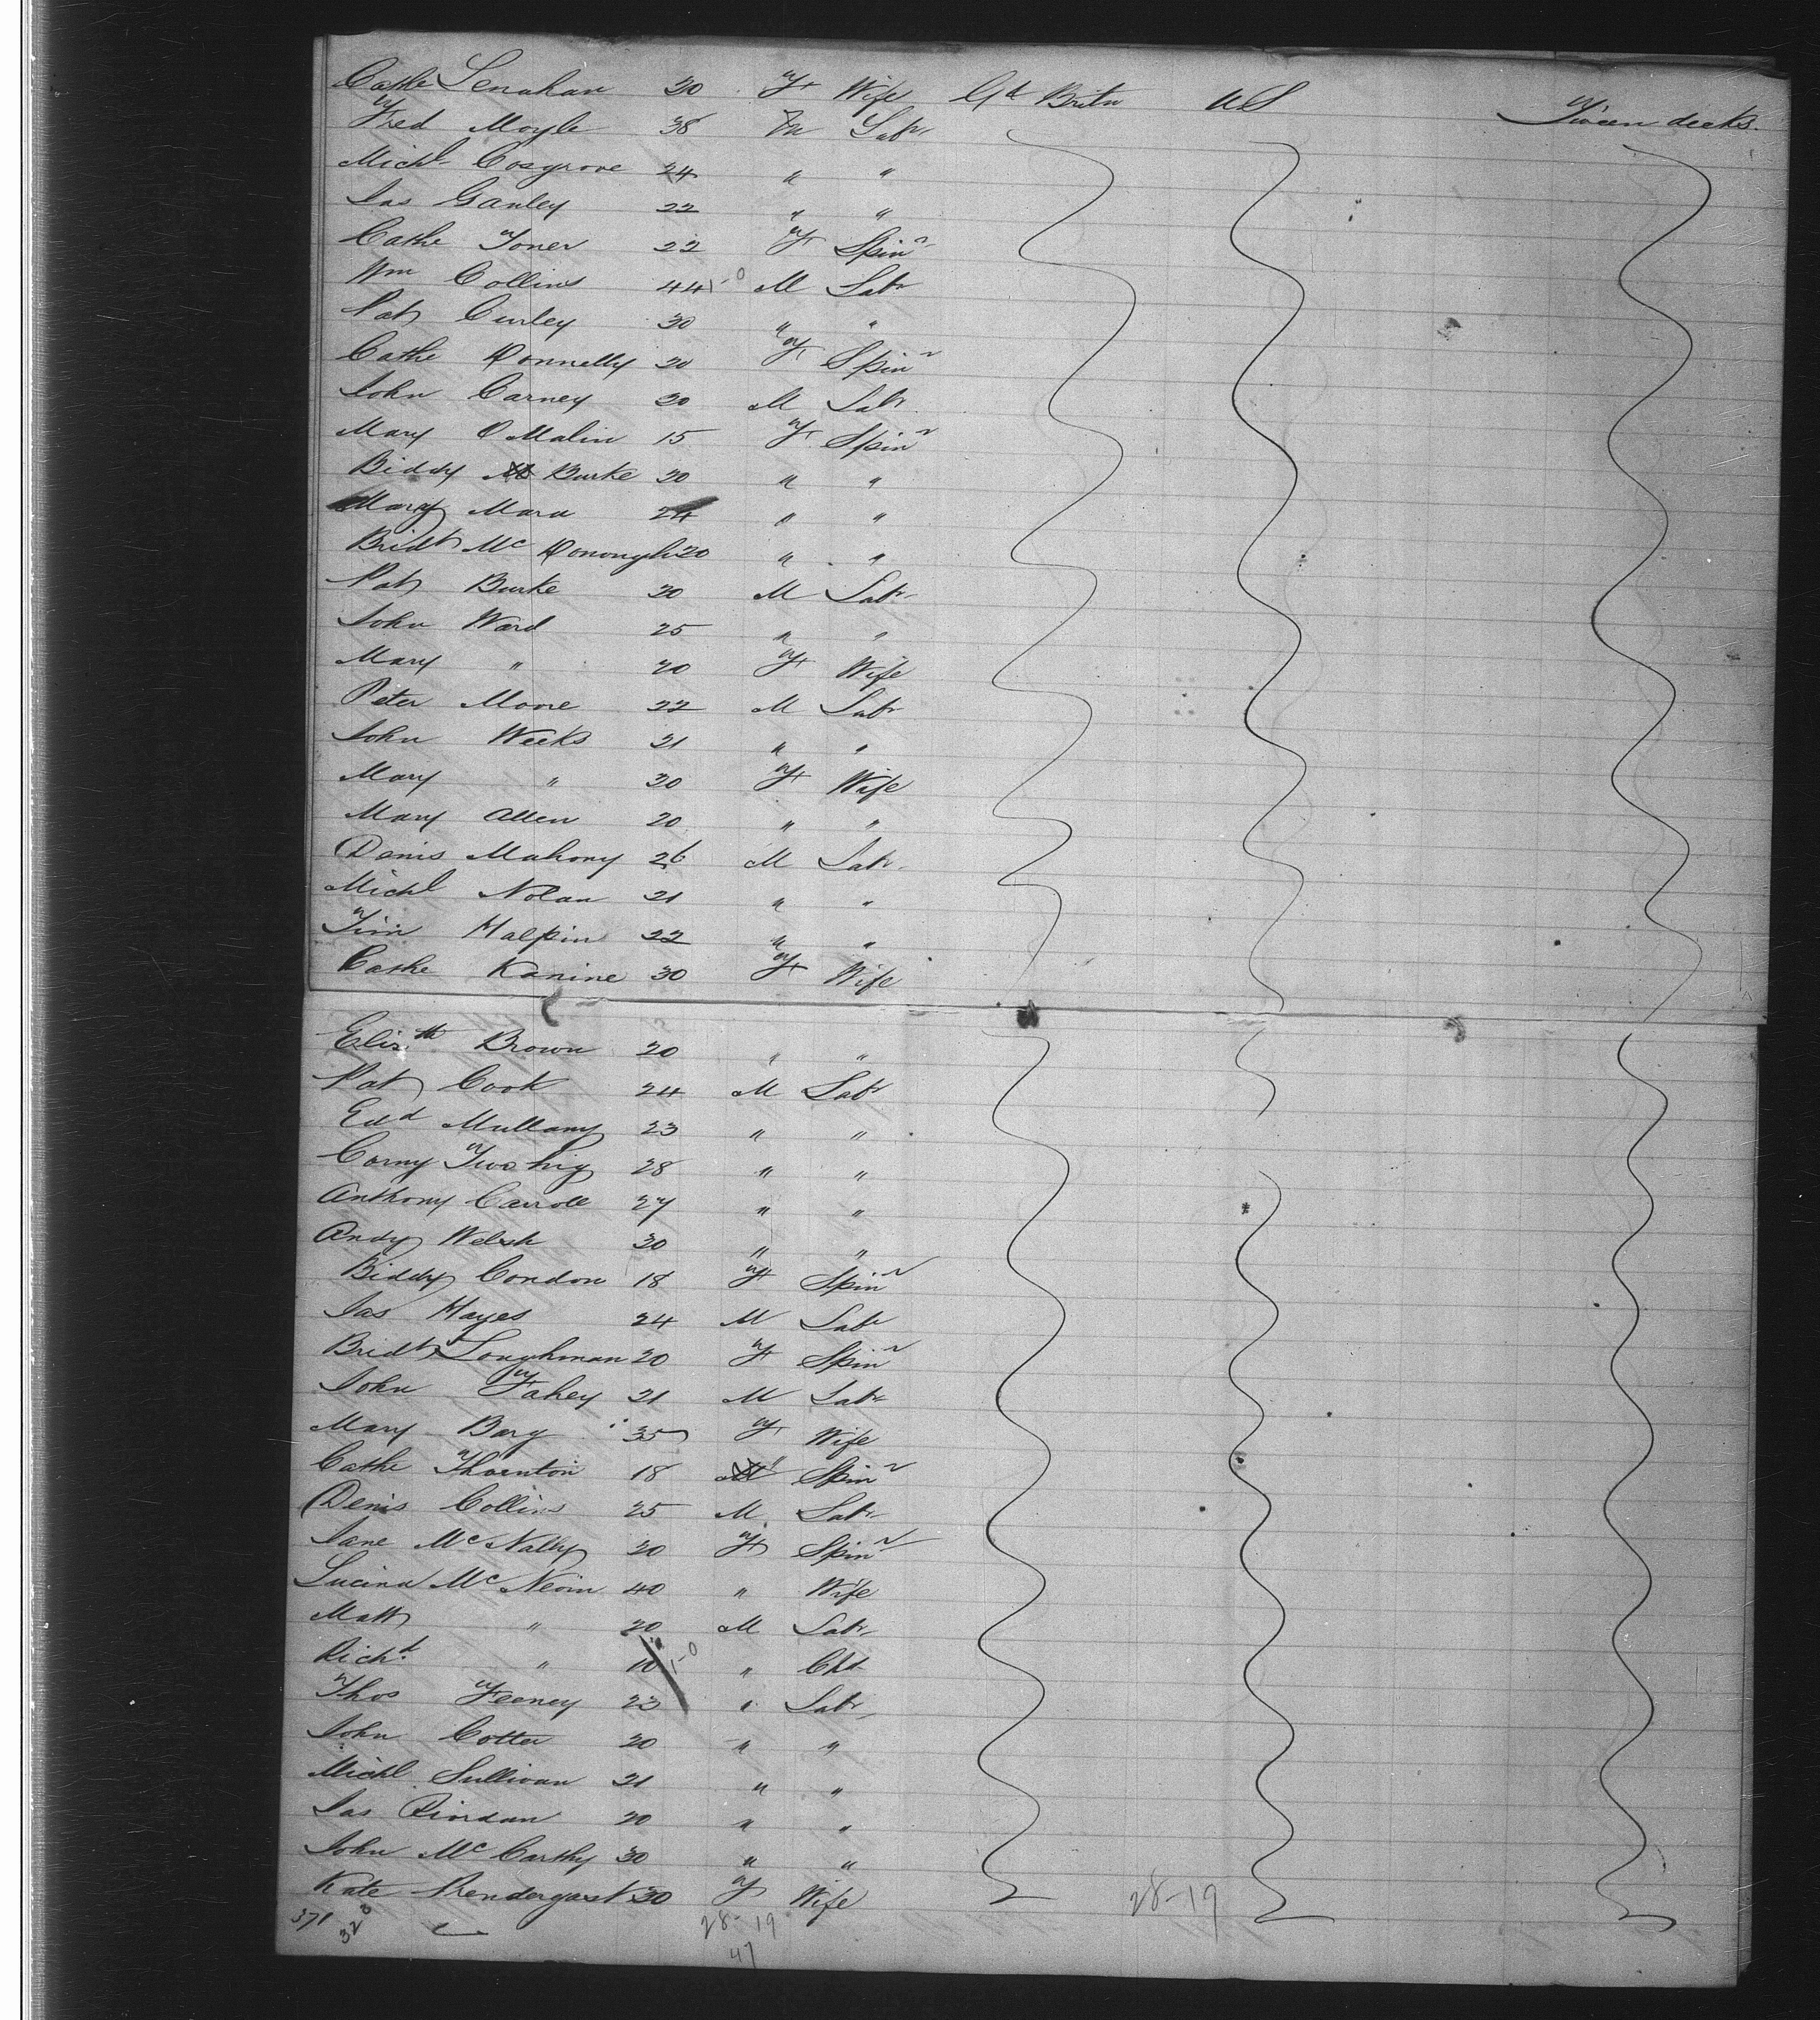 Cathe Lenahan 30 F Wife Gt Britn US 'Tween decks.
Fred Moyle 38 M Labr
Michl Cosgrove 24 " "
Jas Ganley 22 " "
Cathe Toner 22 F Spinr
Wm Collins 44 1-0 M Labr
Pat Curley 30 " "
Cathe Donnelly 20 F Spinr
John Carney 20 M Labr
Mary O Malin 15 F Spinr
Biddy Burke 20 " "
Mary Mara 24 " "
Bridt Mc Donough 20 " "
Pat Burke 20 M Labr
John Ward 25 " "
Mary " 20 F Wife
Peter Moore 22 M Labr
John Weeks 21 " "
Mary " 30 F Wife
Mary Allen 20 " "
Denis Mahony 26 M Labr
Michl Nolan 21 " "
Tim Halpin 22 " "
Cathe Kanine 30 F Wife
Elizth Brown 20 " "
Pat Cook 24 M Labr
Edd Mullany 23 " "
Corny Twohig 28 " "
Anthony Carroll 27 " "
Andy Welsh 30 " "
Biddy Condon 18 F Spinr
Jas Hayes 24 M Labr
Bridt Loughman 20 F Spinr
John Fahey 21 M Labr
Mary Barg 35 F Wife
Cathe Thornton 18 Spinr
Denis Collins 25 M Labr
Jane McNally 20 F Spinr
Lucina Mc Neoin 40 " Wife
Matt " 20 M Labr
Richd " 10 1-0 " Chd
Thos Feeney 23 " Labr
John Cotter 20 " "
Michl Sullivan 21 " "
Jas Riordan 20 " "
John McCarthy 30 " "
Kate Prendergast 30 F Wife
371 328 28-19 28-19
47